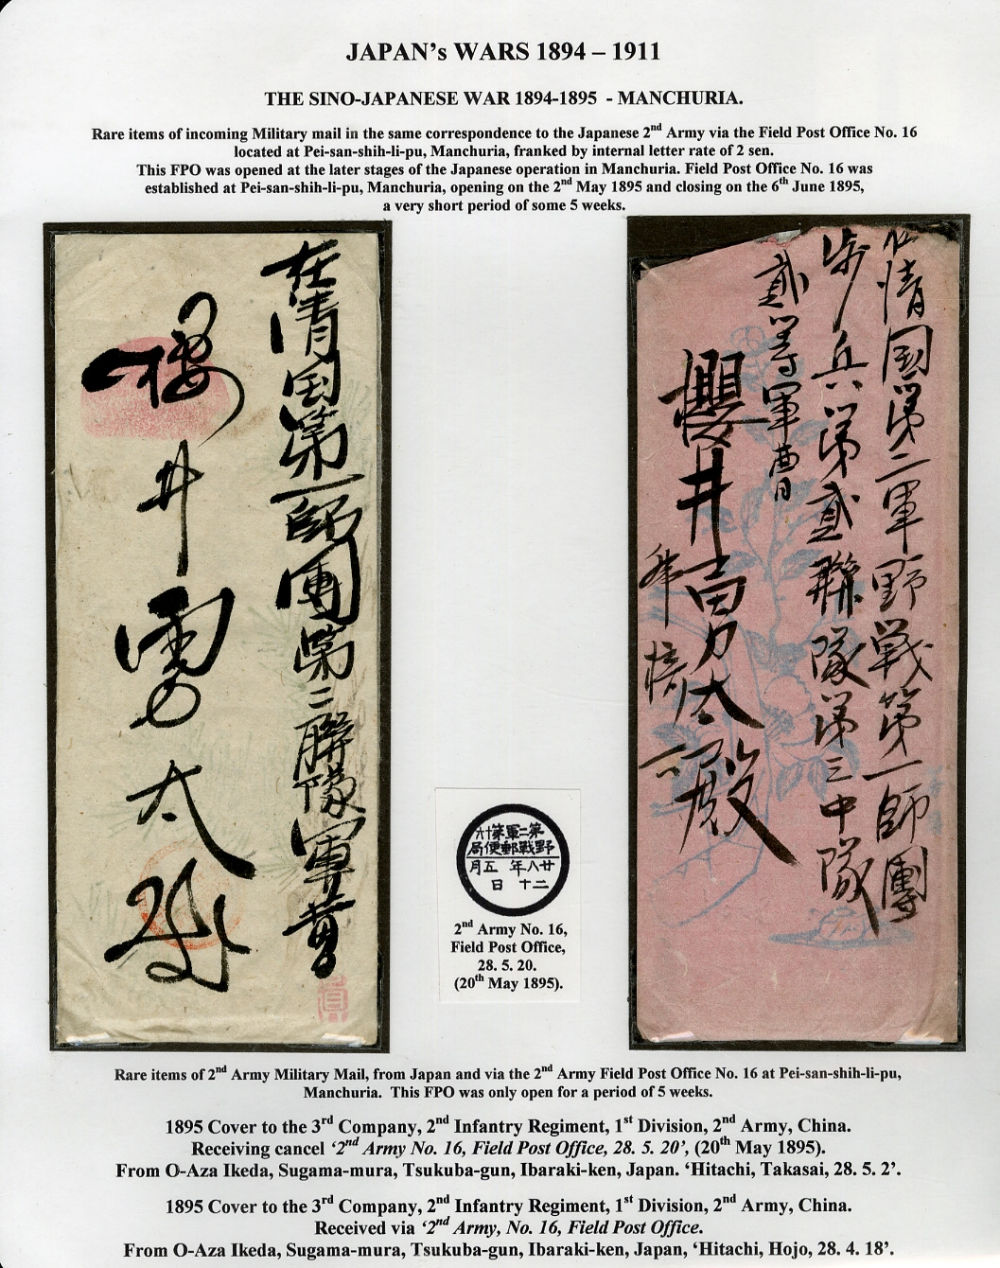 JAPAN's WARS 1894 – 1911
THE SINO-JAPANESE WAR 1894-1895 - MANCHURIA.
Rare items of incoming Military mail in the same correspondence to the Japanese 2nd Army via the Field Post Office No. 16
located at Pei-san-shih-li-pu, Manchuria, franked by internal letter rate of 2 sen.
This FPO was opened at the later stages of the Japanese operation in Manchuria. Field Post Office No. 16 was
established at Pei-san-shih-li-pu, Manchuria, opening on the 2nd May 1895 and closing on the 6th June 1895,
a very short period of some 5 weeks.
在清国第一師團第二聯隊軍曹
櫻井勇太
清国第二軍野戦第一師團
歩兵第貳聯隊第三中隊
貳等軍曹
櫻井勇太殿
第二軍第十六
野戰郵便局
廿八年五月
二十日
2nd Army No. 16,
Field Post Office,
28. 5. 20.
(20th May 1895).
Rare items of 2nd Army Military Mail, from Japan and via the 2nd Army Field Post Office No. 16 at Pei-san-shih-li-pu,
Manchuria. This FPO was only open for a period of 5 weeks.
1895 Cover to the 3rd Company, 2nd Infantry Regiment, 1st Division, 2nd Army, China.
Receiving cancel ‘2nd Army No. 16, Field Post Office, 28. 5. 20’, (20th May 1895).
From O-Aza Ikeda, Sugama-mura, Tsukuba-gun, Ibaraki-ken, Japan. ‘Hitachi, Takasai, 28. 5. 2’.
1895 Cover to the 3rd Company, 2nd Infantry Regiment, 1st Division, 2nd Army, China.
Received via ‘2nd Army, No. 16, Field Post Office.
From O-Aza Ikeda, Sugama-mura, Tsukuba-gun, Ibaraki-ken, Japan, ‘Hitachi, Hojo, 28. 4. 18’.